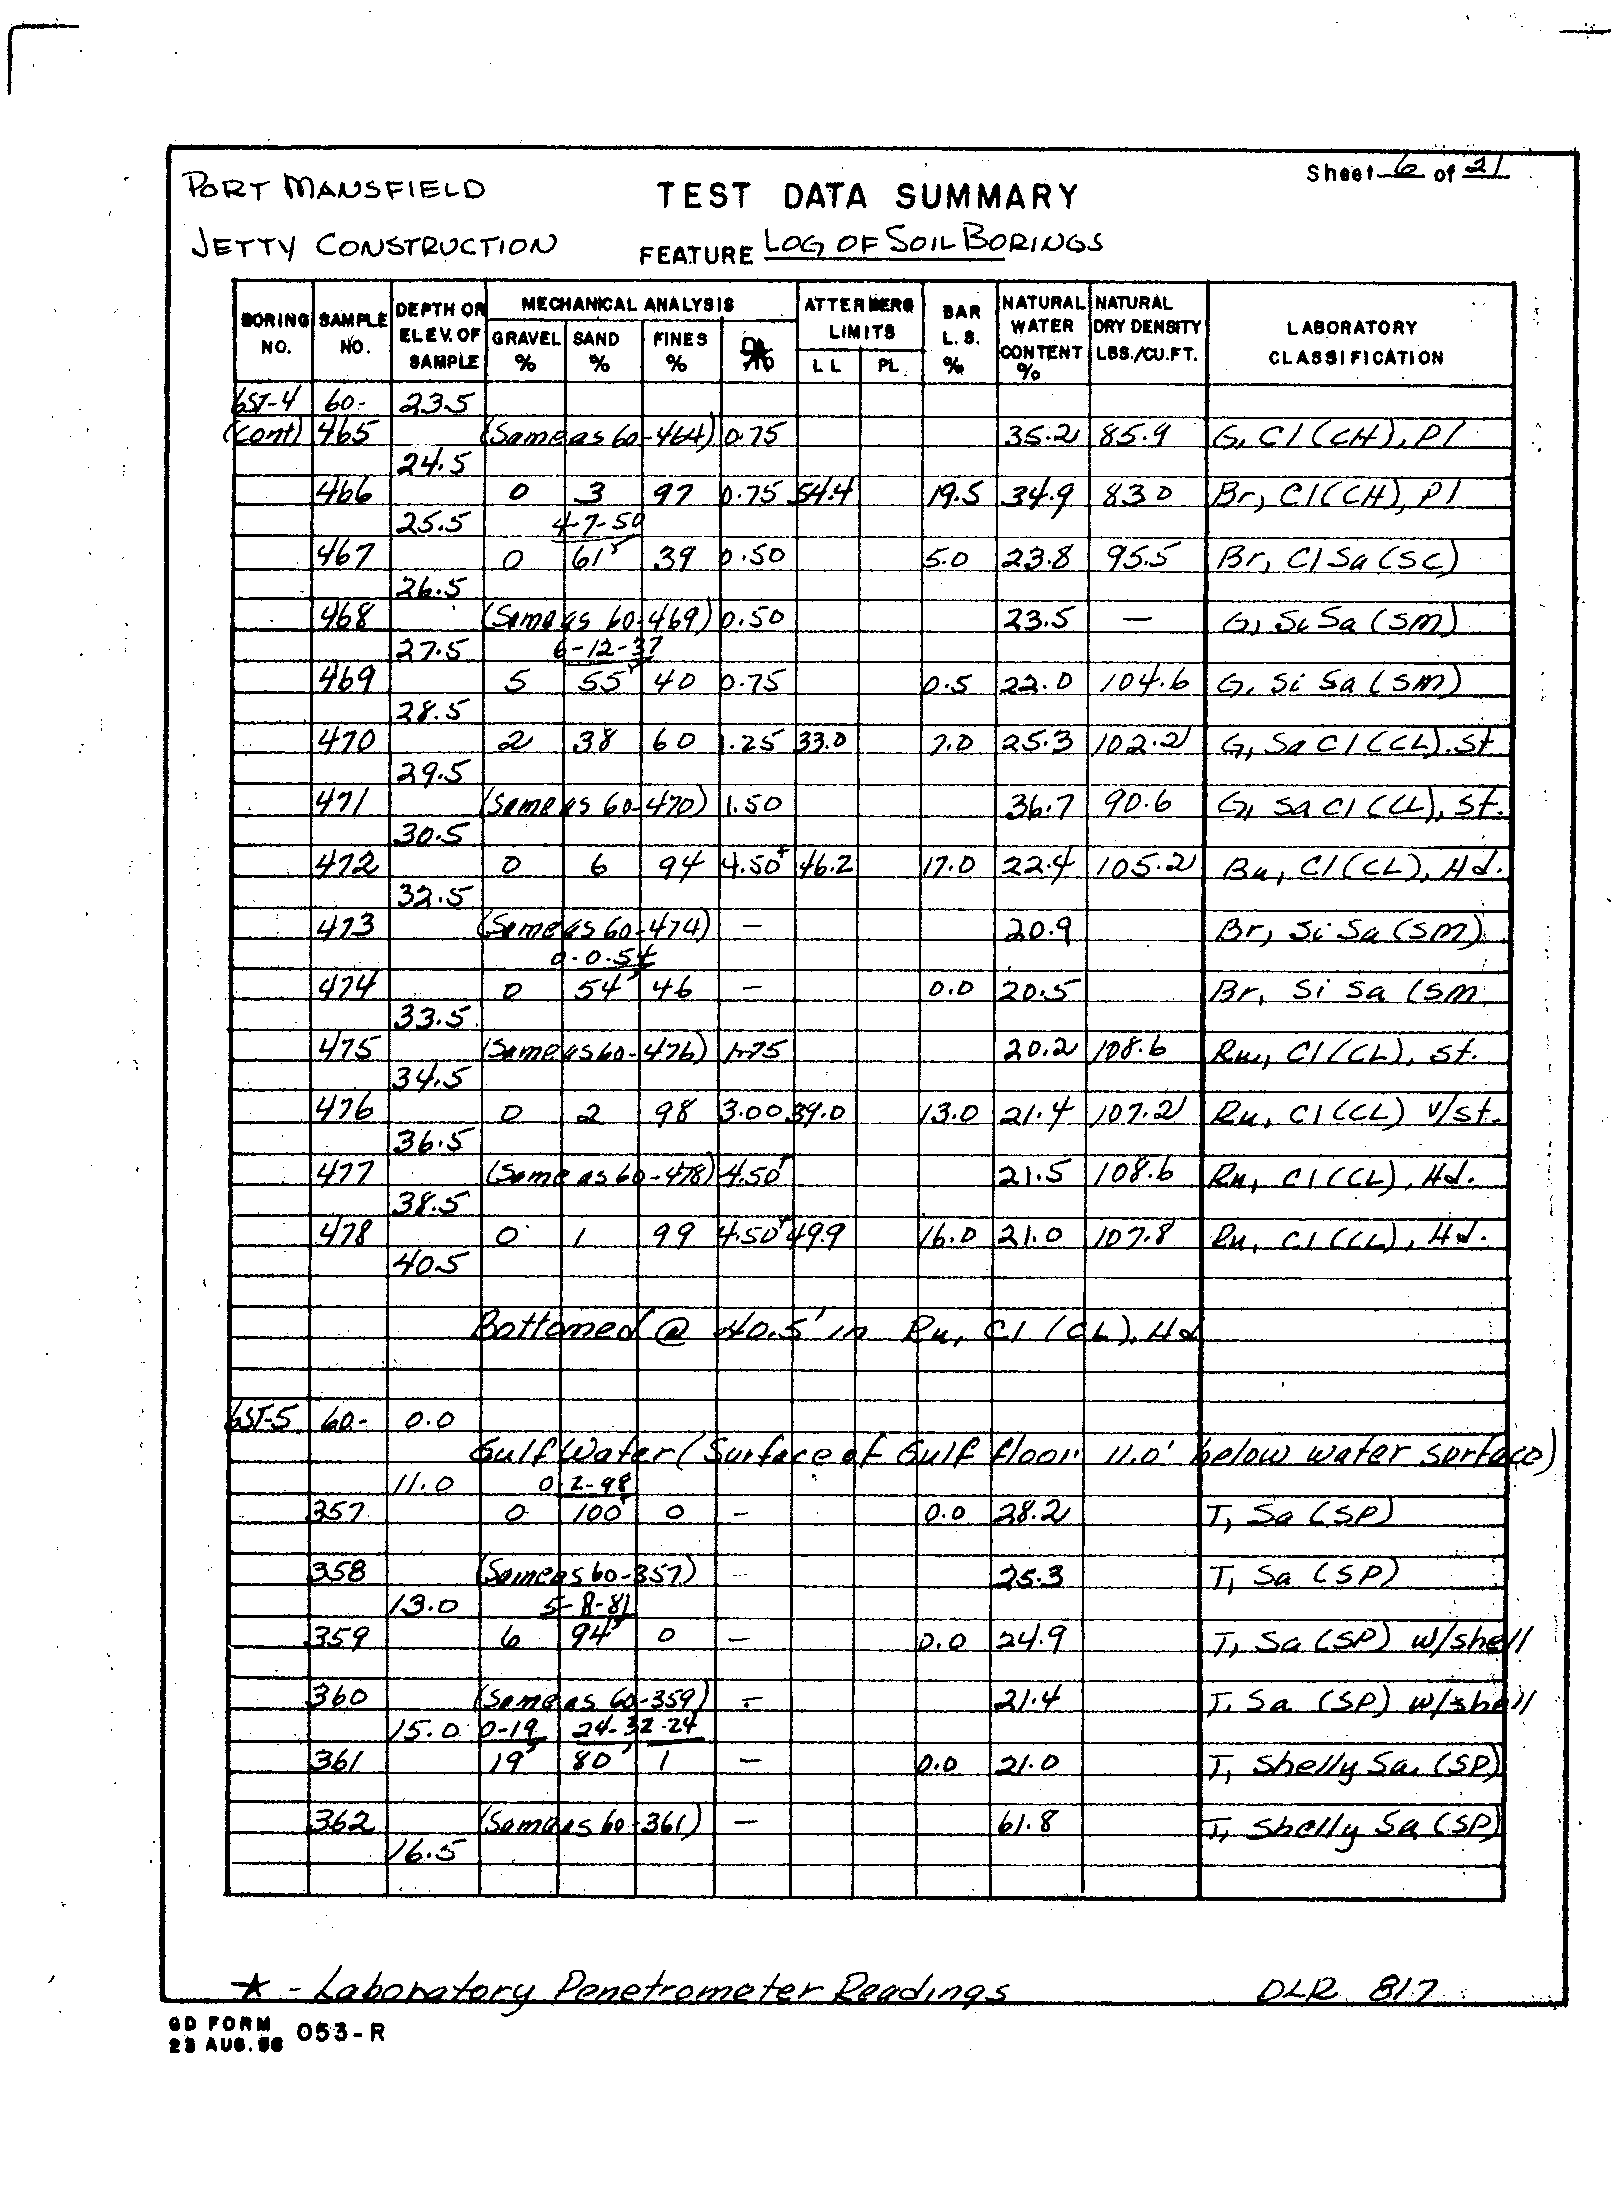 Sheet 6 of 21
PORT MANSFIELD
TEST DATA SUMMARY
JETTY CONSTRUCTION
FEATURE LOG OF SOIL BORINGS
BORING NO. SAMPLE NO. DEPTH OR ELEV. OF SAMPLE MECHANICAL ANALYSIS GRAVEL % SAND % FINES % ATTERBERG LIMITS LL PL BAR L.S. % NATURAL WATER CONTENT % NATURAL DRY DENSITY LBS./CU.FT. LABORATORY CLASSIFICATION
6ST-4 60- 23.5
(cont) 465 (Same as 60-464) 0.75 35.2 85.9 G, Cl (CH), Pl
24.5
466 0 3 97 0.75 54.4 19.5 34.9 83.0 Br, Cl (CH), Pl
25.5 4-7-50
467 0 61 39 0.50 5.0 23.8 95.5 Br, Cl Sa (SC)
26.5
468 (Same as 60-469) 0.50 23.5 — G, Si Sa (SM)
27.5 6-12-37
469 5 55 40 0.75 0.5 22.0 104.6 G, Si Sa (SM)
28.5
470 2 38 60 1.25 33.0 7.0 25.3 102.2 G, Sa Cl (CL), St
29.5
471 (Same as 60-470) 1.50 36.7 90.6 G, Sa Cl (CL), St.
30.5
472 0 6 94 4.50+ 46.2 17.0 22.4 105.2 Bu, Cl (CL), Hd.
32.5
473 (Same as 60-474) — 20.9 Br, Si Sa (SM)
0-0-54
474 0 54 46 — 0.0 20.5 Br, Si Sa (SM
33.5
475 (Same as 60-476) 1.75 20.2 108.6 Ru, Cl (CL), St.
34.5
476 0 2 98 3.00 39.0 13.0 21.4 107.2 Ru, Cl (CL) V/St.
36.5
477 (Same as 60-478) 4.50+ 21.5 108.6 Ru, Cl (CL), Hd.
38.5
478 0 1 99 4.50+ 49.9 16.0 21.0 107.8 Ru, Cl (CL), Hd.
40.5
Bottomed @ 40.5' in Ru, Cl (CL), Hd
6ST-5 60- 0.0
Gulf Water (Surface of Gulf floor 11.0' below water surface)
11.0 0-2-98
357 0 100 0 — 0.0 28.2 T, Sa (SP)
358 (Same as 60-357) - 25.3 T, Sa (SP)
13.0 5-8-81
359 6 94 0 — 0.0 24.9 T, Sa (SP) w/shell
360 (Same as 60-359) — 21.4 T, Sa (SP) w/shell
15.0 0-19 24-32-24
361 19 80 1 — 0.0 21.0 T, Shelly Sa, (SP)
362 (Same as 60-361) — 61.8 T, Shelly Sa (SP)
16.5
* - Laboratory Penetrometer Readings DLR 817
GD FORM 053-R
23 AUG. 56